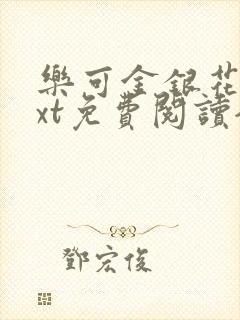 樂可金銀花
xt免費閱讀
鄧宏俊